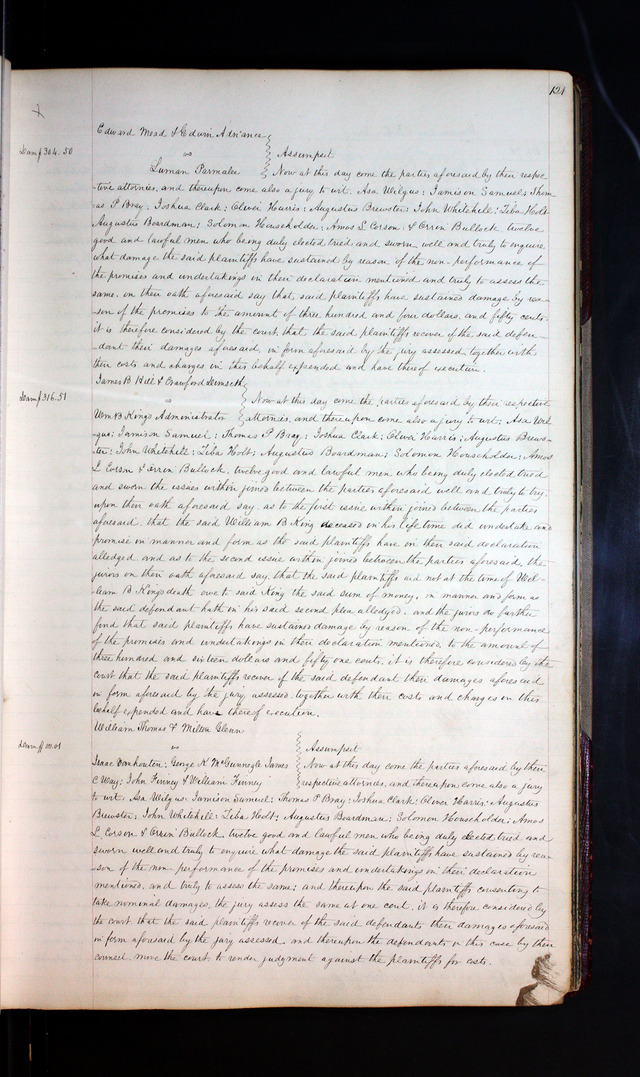 121
Edward Mead & Edwin Adriance
Dam $304.50
vs
Assumpsit
Luman Parmalee
Now at this day come the parties aforesaid by their respec-
-tive attornies, and thereupon come also a jury to wit. Asa Wilgus: Jamison Samuel: Thom
as P Bray: Joshua Clark: Oliver Harris: Augustus Brewster: John Whitehill: Ziba Holt
Augustus Boardman: Solomon Householder: Amos L Corson: & Orrin Bullock twelve
good and lawful men who being duly elected tried and sworn well and truly to enquire
what damage the said plaintiffs have sustained by reason of the non-performance of
the promises and undertakings in their declaration mentioned and truly to assess the
same. on their oath aforesaid say that said plaintiffs have sustained damage by rea-
-son of the promises to the amount of three hundred and four dollars, and fifty cents.
it is therefore considered by the court that the said plaintiffs recover of the said defen-
-dant their damages aforesaid, in form aforesaid by the jury assessed together with
their costs and charges in this behalf expended and have thereof execution.
James B Hill & Crawford
Dam $316.51
vs
Now at this day come the parties aforesaid by their respective
Wm B Kings Administrator
attornies, and thereupon come also a jury to wit: Asa Wil
-gus: Jamison Samuel: Thomas P Bray: Joshua Clark: Oliver Harris: Augustus Brews-
-ter: John Whitehill: Ziba Holt: Augustus Boardman: Solomon Householder: Amos
L Corson & Orrin Bullock, twelve good and lawful men who being duly elected tried
and sworn the issues within joined between the parties aforesaid well and truly to try.
upon their oath aforesaid say, as to the first issue within joined between the parties
aforesaid, that the said William B King deceased in his life time did undertake and
promise in manner and form as the said plaintiffs have in their said declaration
alledged and as to the second issue within joined between the parties aforesaid, the
jurors on their oath aforesaid say, that the said plaintiffs did not at the time of Wil-
-liam B Kings death owe to said King the said sum of money, in manner and form as
the said defendant hath in his said second plea alledged. and the jurors do further
find that said plaintiffs have sustained damage by reason of the non-performance
of the promises and undertakings in their declaration mentioned, to the amount of
three hundred and sixteen dollars and fifty one cents. it is therefore considered by the
court that the said plaintiffs recover of the said defendant their damages aforesaid
in form aforesaid by the jury assessed together with their costs and charges in this
behalf expended and have thereof execution.
William Thomas & Milton Glenn
vs
Assumpsit
Isaac Vanhouten: George K McGunnegle James
Now at this day come the parties aforesaid by their
C Way: John Finney & William Finney
respective attornies, and thereupon come also a jury
to wit. Asa Wilgus: Jamison Samuel: Thomas P Bray: Joshua Clark: Oliver Harris: Augustus
Brewster: John Whitehill: Ziba Holt: Augustus Boardman: Solomon Householder: Amos
L Corson & Orrin Bullock, twelve good and lawful men who being duly elected tried and
sworn well and truly to enquire what damage the said plaintiffs have sustained by rea-
-son of the non-performance of the promises and undertakings in their declaration
mentioned, and truly to assess the same: and thereupon the said plaintiffs consenting to
take nominal damages, the jury assess the same at one cent. it is therefore considered by
the court that the said plaintiffs recover of the said defendants their damages aforesaid
in form aforesaid by the jury assessed and thereupon the defendants in this case by their
counsel move the court to render judgment against the plaintiffs for costs.